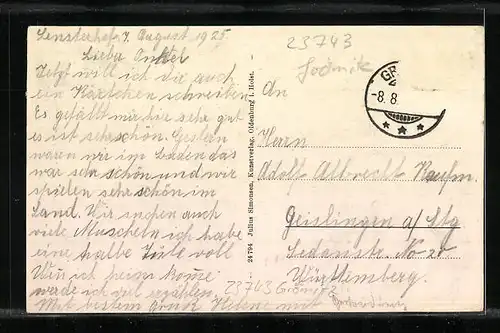 Lensterhof, 7. August 1925.
Liebe Onkel
Jetzt will ich die auch
ein Kärtchen schreiben
Es gefällt mir hie sehr gut
es ist sehr schön. Gestern
waren wir im baden das
war sehr schön und wir
spielen sehr schön im
Sand. Wir suchen auch
viele Muscheln ich habe
eine halbe Tüte voll
Wen ich heim komme
werde ich viel erzählen.
Mit bestem Gruß Helene
24794 Julius Simonsen, Kunstverlag, Oldenburg i. Holst.
23743
An
GR
-8.8.
Herrn
Adolf Albrecht Kaufm.
Geislingen a/Stg
Württemberg.
23743 Grömitz